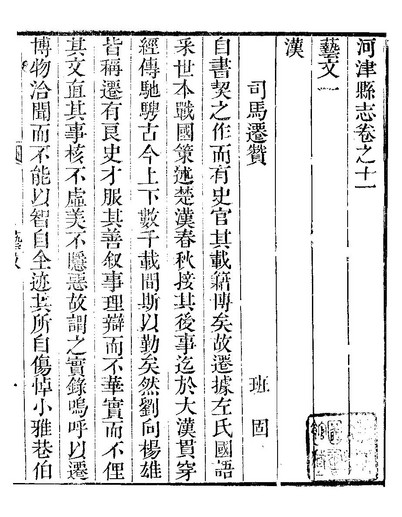 河津縣志卷之十一
藝文一
漢
司馬遷贊 班固
自書契之作而有史官其載籍博矣故遷據左氏國語
采世本戰國策述楚漢春秋接其後事迄於大漢貫穿
經傳馳騁古今上下數千載間斯以勤矣然劉向楊雄
皆稱遷有良史才服其善叙事理辯而不華實而不俚
其文直其事核不虛美不隱惡故謂之實錄嗚呼以遷
博物洽聞而不能以智自全迹其所自傷悼小雅巷伯